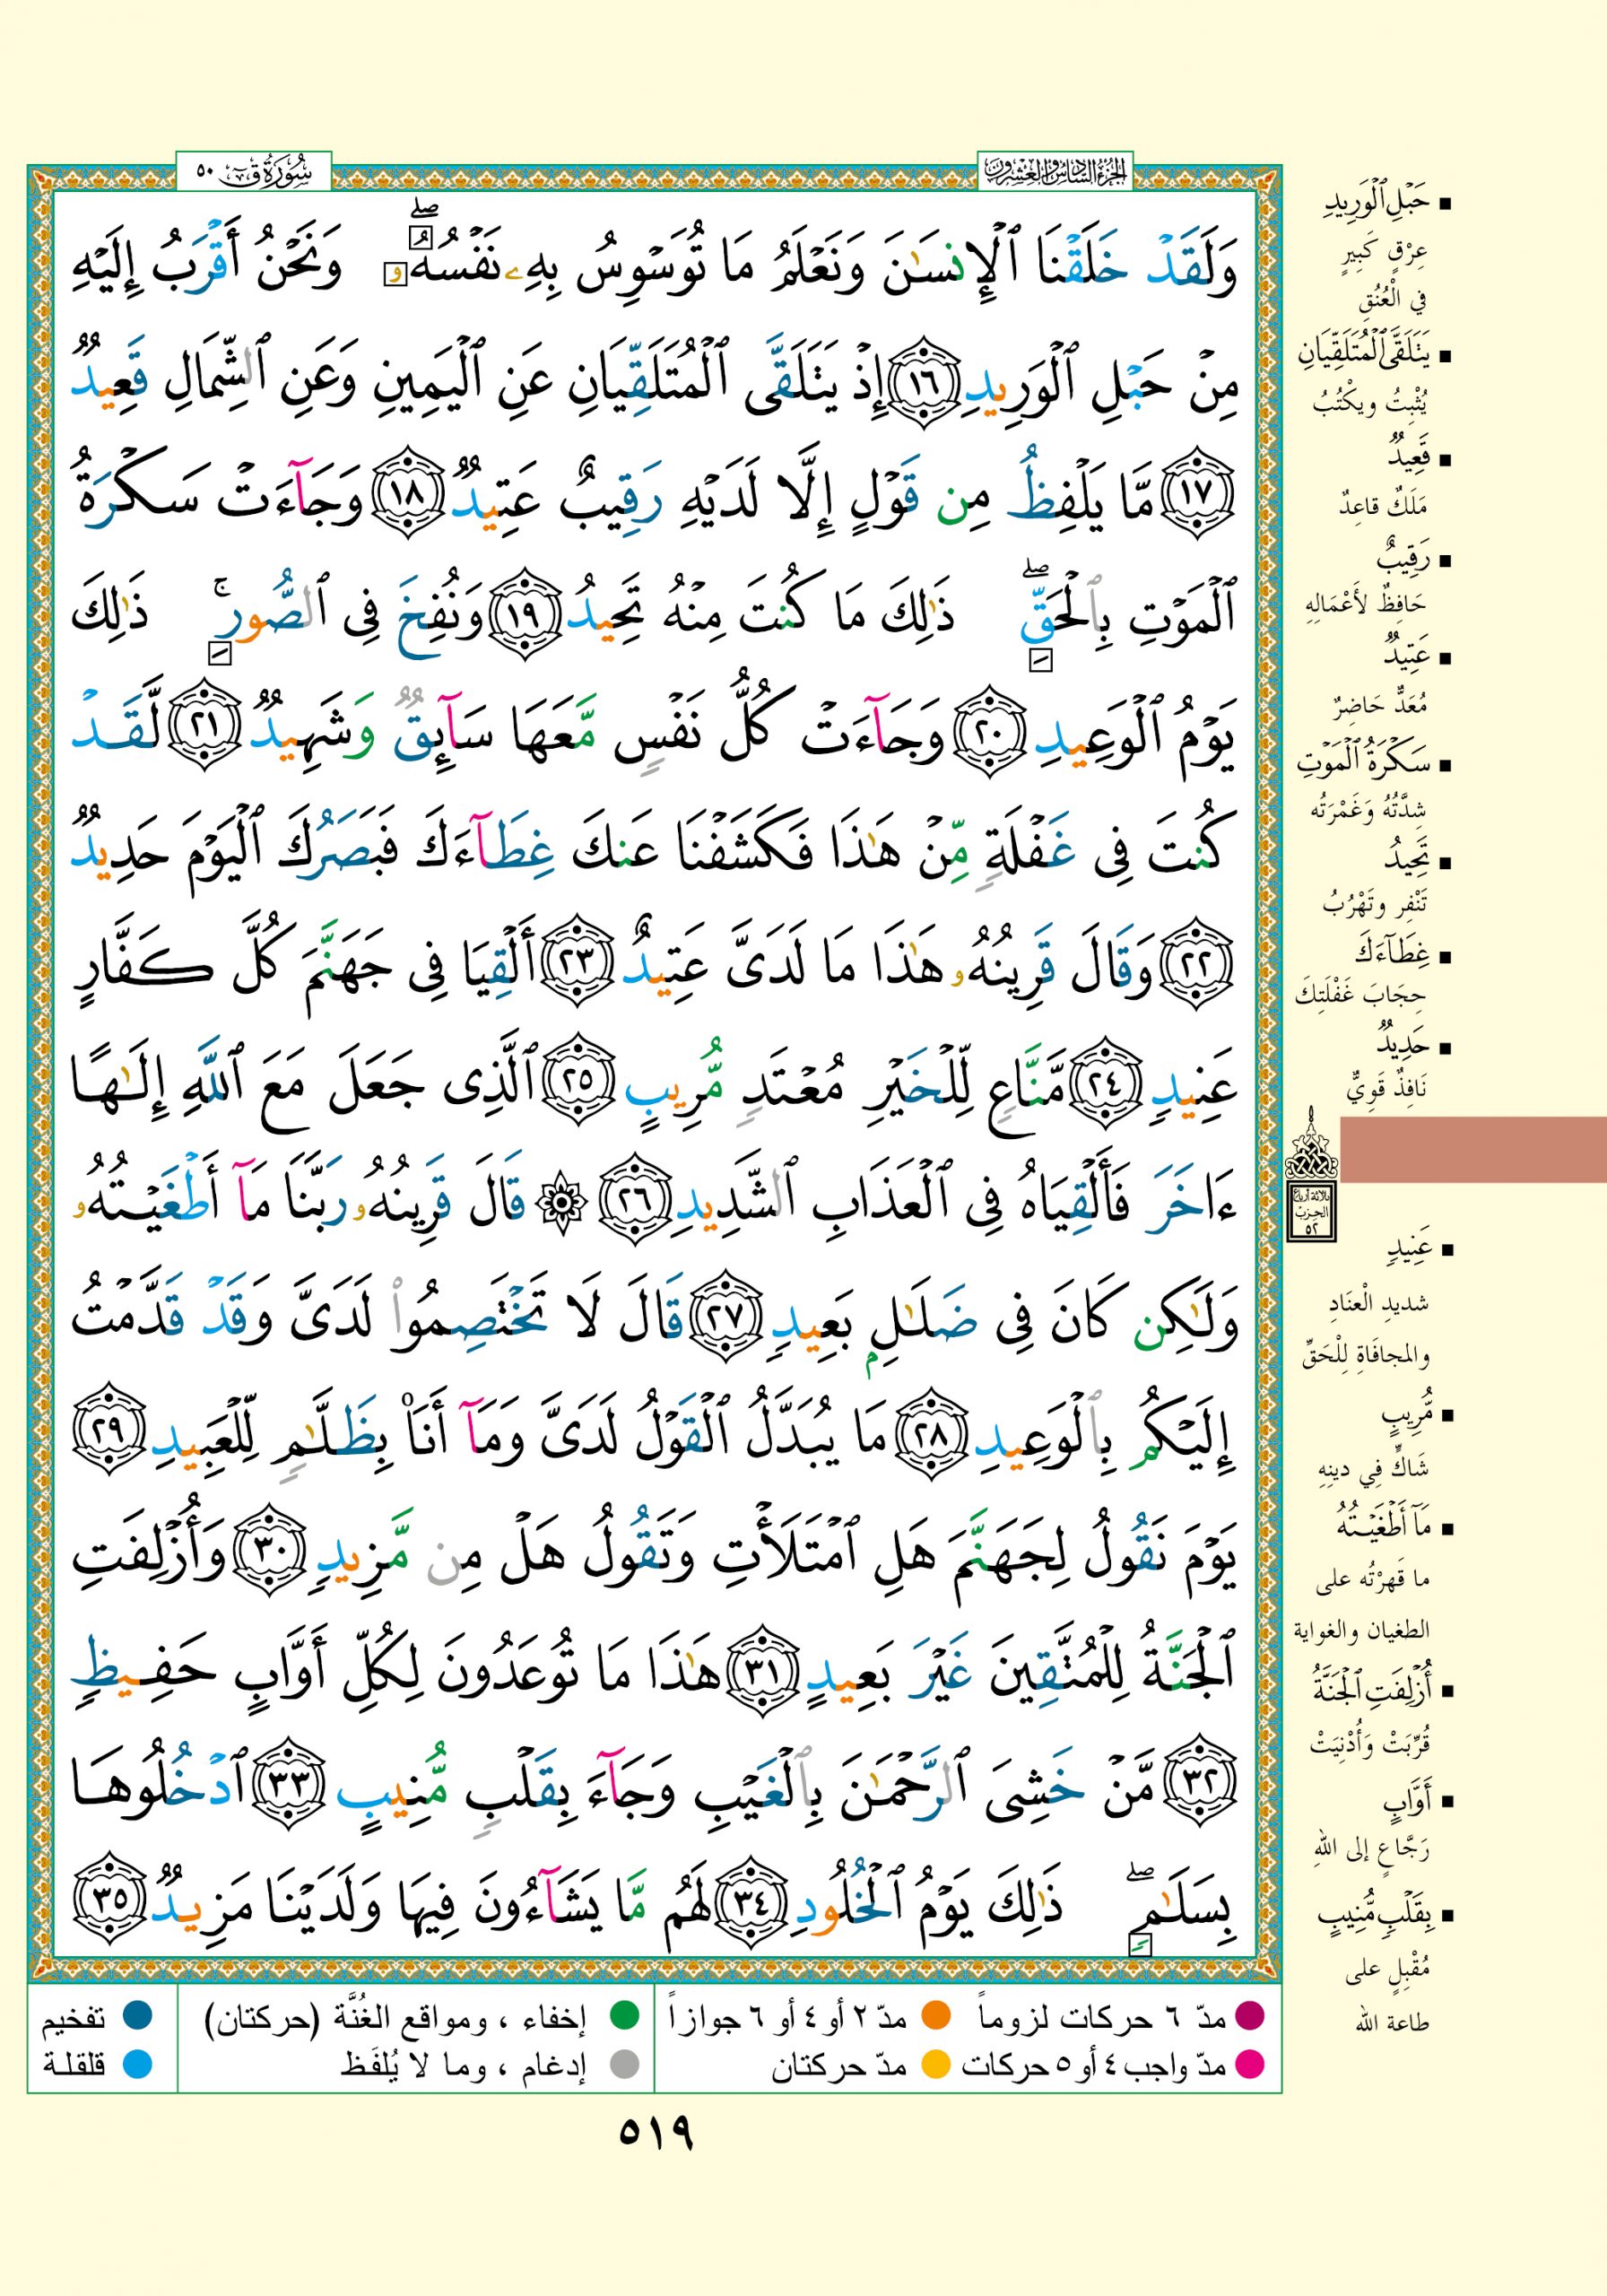 الجزء السادس والعشرون
سُورَةُ قٓ ٥٠
وَلَقَدۡ خَلَقۡنَا ٱلۡإِنسَٰنَ وَنَعۡلَمُ مَا تُوَسۡوِسُ بِهِۦ نَفۡسُهُۥۖ وَنَحۡنُ أَقۡرَبُ إِلَيۡهِ
مِنۡ حَبۡلِ ٱلۡوَرِيدِ ١٦ إِذۡ يَتَلَقَّى ٱلۡمُتَلَقِّيَانِ عَنِ ٱلۡيَمِينِ وَعَنِ ٱلشِّمَالِ قَعِيدٌ
١٧ مَّا يَلۡفِظُ مِن قَوۡلٍ إِلَّا لَدَيۡهِ رَقِيبٌ عَتِيدٌ ١٨ وَجَآءَتۡ سَكۡرَةُ
ٱلۡمَوۡتِ بِٱلۡحَقِّۖ ذَٰلِكَ مَا كُنتَ مِنۡهُ تَحِيدُ ١٩ وَنُفِخَ فِى ٱلصُّورِۚ ذَٰلِكَ
يَوۡمُ ٱلۡوَعِيدِ ٢٠ وَجَآءَتۡ كُلُّ نَفۡسٍ مَّعَهَا سَآئِقٌ وَشَهِيدٌ ٢١ لَّقَدۡ
كُنتَ فِى غَفۡلَةٍ مِّنۡ هَٰذَا فَكَشَفۡنَا عَنكَ غِطَآءَكَ فَبَصَرُكَ ٱلۡيَوۡمَ حَدِيدٌ
٢٢ وَقَالَ قَرِينُهُۥ هَٰذَا مَا لَدَىَّ عَتِيدٌ ٢٣ أَلۡقِيَا فِى جَهَنَّمَ كُلَّ كَفَّارٍ
عَنِيدٍ ٢٤ مَّنَّاعٍ لِّلۡخَيۡرِ مُعۡتَدٍ مُّرِيبٍ ٢٥ ٱلَّذِى جَعَلَ مَعَ ٱللَّهِ إِلَٰهًا
ءَاخَرَ فَأَلۡقِيَاهُ فِى ٱلۡعَذَابِ ٱلشَّدِيدِ ٢٦ ۞ قَالَ قَرِينُهُۥ رَبَّنَا مَآ أَطۡغَيۡتُهُۥ
وَلَٰكِن كَانَ فِى ضَلَٰلِۭ بَعِيدٍ ٢٧ قَالَ لَا تَخۡتَصِمُوا۟ لَدَىَّ وَقَدۡ قَدَّمۡتُ
إِلَيۡكُم بِٱلۡوَعِيدِ ٢٨ مَا يُبَدَّلُ ٱلۡقَوۡلُ لَدَىَّ وَمَآ أَنَا۠ بِظَلَّٰمٍ لِّلۡعَبِيدِ ٢٩
يَوۡمَ نَقُولُ لِجَهَنَّمَ هَلِ ٱمۡتَلَأۡتِ وَتَقُولُ هَلۡ مِن مَّزِيدٍ ٣٠ وَأُزۡلِفَتِ
ٱلۡجَنَّةُ لِلۡمُتَّقِينَ غَيۡرَ بَعِيدٍ ٣١ هَٰذَا مَا تُوعَدُونَ لِكُلِّ أَوَّابٍ حَفِيظٍ
٣٢ مَّنۡ خَشِىَ ٱلرَّحۡمَٰنَ بِٱلۡغَيۡبِ وَجَآءَ بِقَلۡبٍ مُّنِيبٍ ٣٣ ٱدۡخُلُوهَا
بِسَلَٰمٍۖ ذَٰلِكَ يَوۡمُ ٱلۡخُلُودِ ٣٤ لَهُم مَّا يَشَآءُونَ فِيهَا وَلَدَيۡنَا مَزِيدٌ ٣٥
حَبۡلِ ٱلۡوَرِيدِ
عِرْقٍ كَبِيرٍ
فِي الْعُنُقِ
يَتَلَقَّى ٱلۡمُتَلَقِّيَانِ
يُثْبِتُ ويكْتُبُ
قَعِيدٌ
مَلَكٌ قاعِدٌ
رَقِيبٌ
حَافِظٌ لأَعْمَالِهِ
عَتِيدٌ
مُعَدٌّ حَاضِرٌ
سَكۡرَةُ ٱلۡمَوۡتِ
شِدَّتُهُ وَغَمْرَتُه
تَحِيدُ
تَنْفِر وتَهْرُبُ
غِطَآءَكَ
حِجَابَ غَفْلَتِكَ
حَدِيدٌ
نَافِذٌ قَوِيٌّ
ثلاثة أرباع
الحزب
٥٢
عَنِيدٍ
شديدِ الْعنَادِ
والمجافَاةِ لِلْحَقِّ
مُّرِيبٍ
شَاكٍّ فِي دينِهِ
مَآ أَطۡغَيۡتُهُ
ما قَهرْتُه على
الطغيان والغواية
أُزۡلِفَتِ ٱلۡجَنَّةُ
قُرِّبَتْ وَأُدْنِيَتْ
أَوَّابٍ
رَجَّاعٍ إلى اللهِ
بِقَلۡبٍ مُّنِيبٍ
مُقْبِلٍ على
طاعة الله
مدّ ٦ حركات لزوماً
مدّ ٢ أو ٤ أو ٦ جوازاً
إخفاء ، ومواقع الغُنَّة (حركتان)
تفخيم
مدّ واجب ٤ أو ٥ حركات
مدّ حركتان
إدغام ، وما لا يُلفَظ
قلقلة
٥١٩